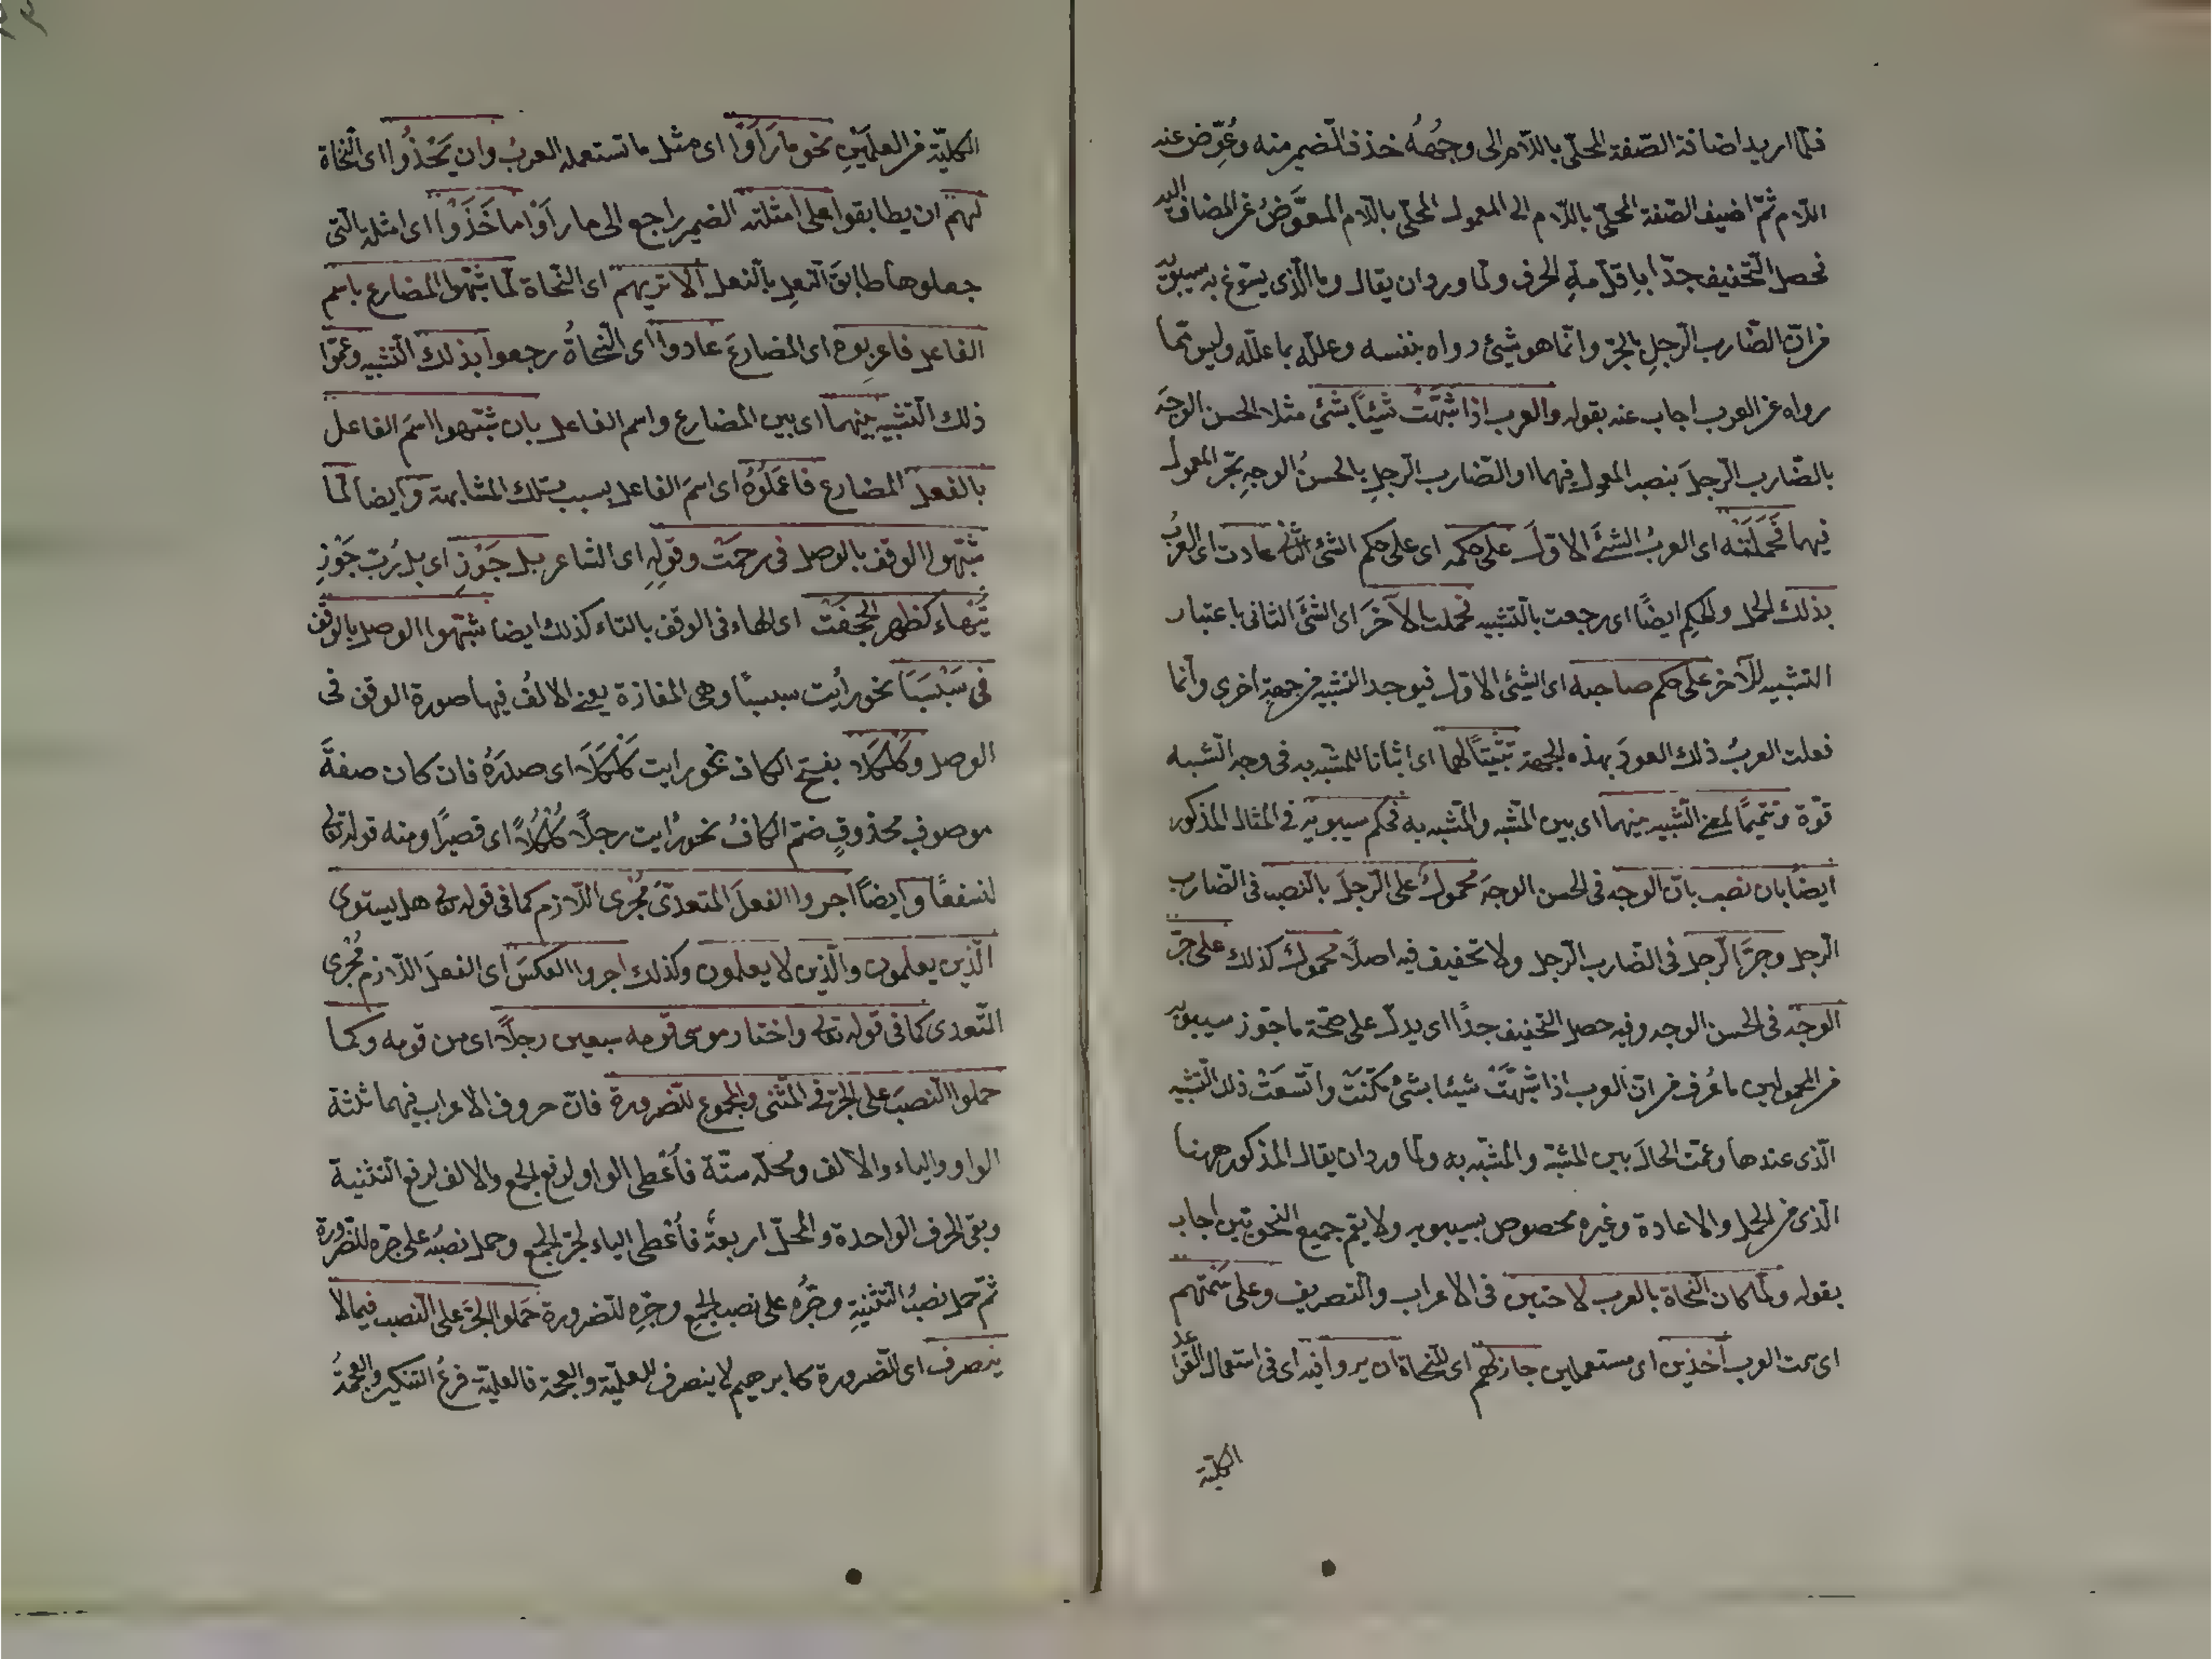 فلمّا اريد اضافة الصّفة المحلّى باللّام الى وجهُهُ حذف الضمير منه وعُوِّض عنه
اللّام ثمّ اضيف الصّفة المحلّى باللّام الى المعمول المحلّى باللّام المعوَّض عن المضاف اليه
فحصل التّخفيف جدّا باقل مرة الحرف ولما ورد ان يقال وما الّذى يسوّغ به سيبويه
من انّ الضّارب الرّجلِ بالجرّ وانّما هو شئ رواه بنفسه وعلّله بما علّله وليس ممّا
رواه عن العرب اجاب عنه بقوله والعرب اذا شبَّهَتْ شيئًا بشئ مثلا الحسن الوجهَ
بالضّارب الرّجلَ بنصب المعمول فيهما او الضّارب الرّجلِ بالحسنُ الوجهِ بجرّ المعمول
فيهما فحَمَلَتْه اى العربُ الشئَ الاوّل على حكمه اى على حكم الشئ الثانى عادت اى العربُ
بذلك الحمل والحكم ايضًا اى رجعت بالتّشبيه فحملت الآخَرَ اى الشئَ الثانى باعتبار
التشبيه للآخر على حكم صاحبه اى الشئ الاوّل فيوجد التشبيه من جهة اخرى وانّما
فعلت العربُ ذلك العودَ بهذه الجهة تثبيتًا لهما اى اثباتا للمشبه به فى وجه الشّبه
قوّة وتتميمًا لمعنى التّشبيه بينهما اى بين المشّبه والمشّبه به فحكم سيبويه فى المثال المذكور
ايضًا بان نصب بانّ الوجه فى الحسن الوجهَ محمولٌ على الرّجلَ بالنصب فى الضّارب
الرّجل وجرَّ الرّجل فى الضّارب الرّجل ولا تخفيف فيه اصلًا محمولٌ كذلك على جرّ
الوجه فى الحسن الوجه وفيه حصل التخفيف جدًّا اى يدلّ على صحّة ما جوّز سيبويه
من المحمولين ما عُرف من انّ العرب اذا شبَّهَتْ شيئا بشئ مكّنَتْ واتّسعَتْ ذلك التّشبيه
الّذى عندها وعمّت الحالَ بين المشبّه والمشبّه به ولمّا ورد ان يقال المذكور ههنا
الّذى من الحمل والاعادة وغيره مخصوص بسيبويه ولا يتم جميع النّحويّين اجاب
بقوله ولمّا كان النّحاة بالعرب لاحقين فى الاعراب والتّصريف وعلى سَمْتهم
اى سمت العرب آخذين اى مستعملين جاز لهم اى للنّحاة ان يروا فيه اى فى استعمال القواعد
الكلّيّة
الكلّيّة من العلمَيْنِ نحو ما رَأَوْا اى مثل ما تستعمله العربُ وان يَحْذُوا اى النّحاة
لهم ان يطابقوا على امثلته الضمير راجع الى ما رأوا ما حَذَوْا اى امثلة بالّتى
جعلوها طابقَ النّعلِ بالنّعل الا تريهم اى النّحاة لمّا شبّهوا المضارع باسم
الفاعل فاعربوه اى المضارعَ عادوا اى النّحاةُ رجعوا بذلك التّشبيه وعمّوا
ذلك التّشبيه بينهما اى بين المضارع واسم الفاعل بان شبّهوا اسمَ الفاعل
بالفعل المضارع فاعملوهُ اى اسمَ الفاعل بسبب تلك المشابهة وايضا لمّا
شبّهوا الوقف بالوصل فى رحمَتْ وقولِه اى الشاعر بل جَوْزِ اى بل رُبّ جَوْزِ
تَيْهاءَ كظهر الحجفَتْ اى الهاء فى الوقف بالتاء كذلك ايضا شبّهوا الوصل بالوقف
فى سَبْسَبَا نحو رأيت سبسبًا وهى المفازة يعنى الالفُ فيها صورة الوقف فى
الوصل وكَلْكَلا بفتح الكاف نحو رايت كَلْكَلَا اى صدرَهُ فان كان صفةَ
موصوفٍ محذوفٍ ضمّ الكافُ نحو رأيت رجلًا كُلْكُلًا اى قصيرًا ومنه قوله تعالى
لنسفعًا وايضًا اجروا الفعلَ المتعدّىَ مُجْرى اللّازم كما فى قوله تعالى هل يستوى
الّذين يعلمون والّذين لا يعلمون وكذلك اجروا العكسَ اى الفعلَ اللّازم مُجْرى
المتّعدى كما فى قوله تعالى واختار موسى قومه سبعين رجلًا اى من قومه وكما
حملوا النّصبَ على الجرّ فى المثنّى والمجموع للضرورة فانّ حروف الاعراب فيهما ثلثة
الواو والياء والالف ومحلّه ستّة فأُعْطى الواو لرفع الجمع والالف لرفع التثنية
وبقى الحرف الواحدة والمحلّ اربعة فأُعْطى الياء لجرّ الجمع وحمل نصبُه على جرّه للضّرورة
ثمّ حمل نصبُ التّثنيةِ وجرُّه على نصب الجمع وجرِّه للضرورة حَملوا الجرَّ على النّصب فيما لا
ينصرف اى للضرورة كابرهيم لا ينصرف للعلميّة والعجمة فالعلميّة فرعُ التنكير والعجمةُ